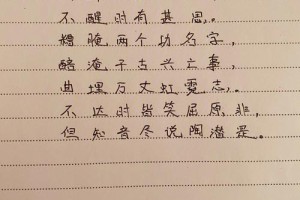 不醒时有甚思。
糟腌两个功名字，
醅淹千古兴亡事，
曲埋万丈虹霓志。
不达时皆笑屈原非，
但知音尽说陶潜是。